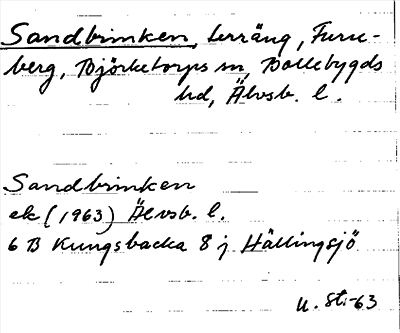 Sandbrinken, terräng, Furu-
berg, Björketorps sn, Bollebygds
hd, Älvsb. l.
Sandbrinken
ek (1963) Älvsb. l.
6 B Kungsbacka 8 j Hällingsjö
U. St.-63